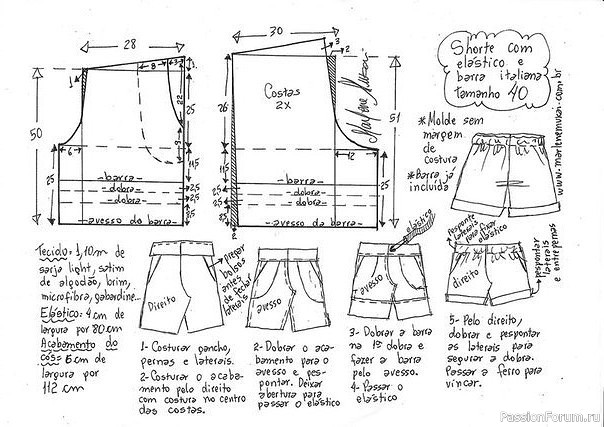 28
30
Shorte com
elástico e
barra italiana
tamanho 40
*Molde sem
márgem
de
costura
*Barra já
incluida
www.marlenemukai.com.br
Marlene Mukai
Costas
2X
50
25
6
1
8
3
22
25
9
11,5
2,5
2,5
25
26
25
11,5
2
3
51
12
25
-barra-
-dobra-
-dobra-
-avesso da barra-
-barra-
-dobra-
-dobra-
-avesso da barra-
2
Tecido: 1,10m de
sarja light, satim
de algodão, brim,
microfibra, gabardine...
Elástico: 4cm de
largura por 80cm
Acabamento do
cós: 6cm de
largura por
112 cm
Direito
pregar
bolsos
antes
de fechar
laterais
avesso
elástico
avesso
Pesponte
laterais
para fixar
elástico
direito
pespontar
laterais
e entrepernas
1- Costurar gancho,
pernas e laterais.
2- Costurar o acaba-
mento pelo direito
com costura no centro
das costas.
2- Dobrar o aca-
bamento para o
avesso e pes-
pontar. Deixar
abertura para
passar o elástico
3- Dobrar a barra
na 1ª dobra e
fazer a barra
pelo avesso.
4- Passar o
elástico
5- Pelo direito,
dobrar e pespontar
as laterais para
segurar a dobra.
Passar a ferro para
vincar.
PassionForum.ru